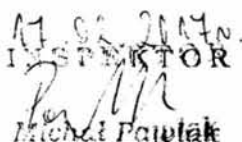 17.02.2017r.
INSPEKTOR
Michał Pawlak